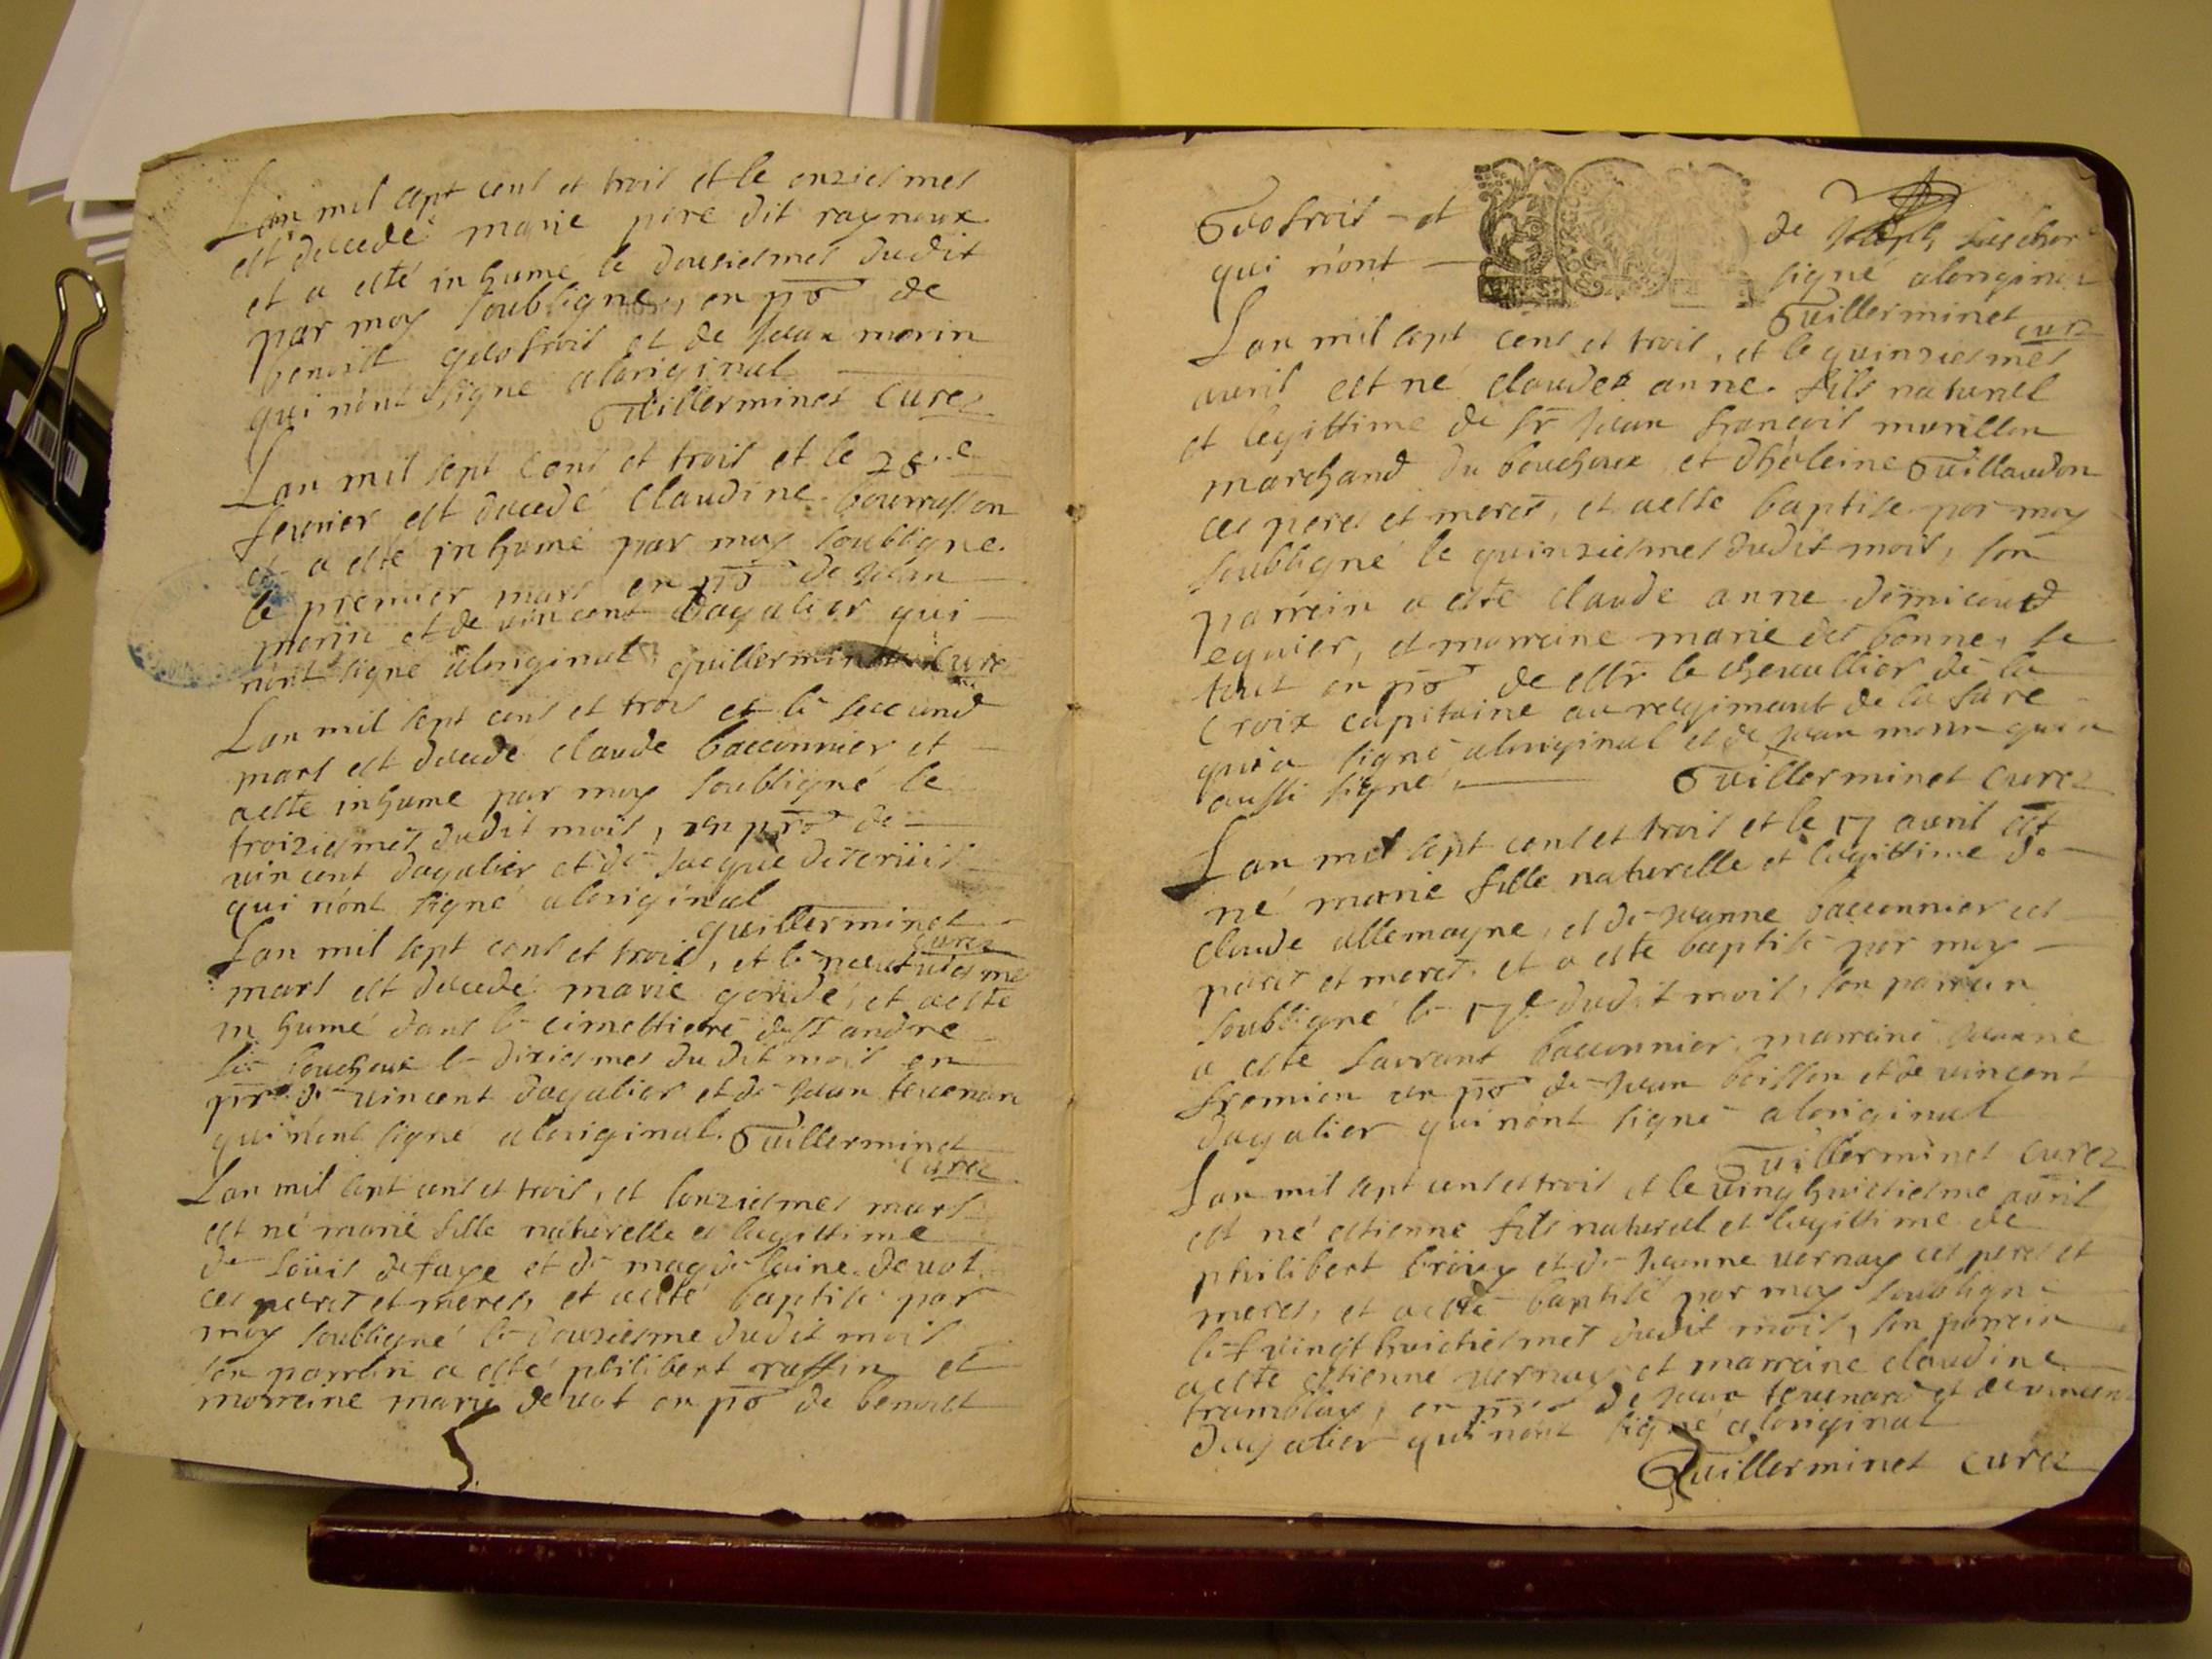 Lan mil sept cens et trois et le onziesmes
est decedé marie pere dit raynoux
et a esté inhumé le dousiesmes dudit
par moy soubsigné, en pñs de
benoist geofrois et de Jean morin
qui nont signé aloriginal
Guillerminet Curez
Lan mil sept cens et trois et le 28e
feuvrier est decedé claudine bourrusson
et a esté inhumé par moy soubsigné
le premier mars en pñs de Jean
morin et de vincent dagalier qui
nont signé aloriginal guillerminet Cure
Lan mil sept cens et trois et le second
mars est decedé claude bacconnier et
a esté inhumé par moy soubsigné le
troiziesmes dudit mois, en pñs de
vincent dagalier et de Jacque
qui nont signé aloriginal
guillerminet
curez
Lan mil sept cens et trois, et le neufviesme
mars est decedé marie et a esté
inhumé dans le cimestiere de St andre
les bouchoux le dixiesmes dudit mois en
pñs de vincent dagalier et de Jean tevenard
qui nont signé aloriginal. Guillerminet
Curez
Lan mil sept cens et trois, et lonziesmes mars
est né marie fille naturelle et legittime
de Loüis defaye et de magdelaine devot
ces peres et meres, et a esté baptisé par
moy soubsigné le dousiesme dudit mois
son parrein a esté philibert ruffin et
marreine marie devot en pñs de benoist
Geofrois et de Joseph
qui nont signé aloriginal
Guillerminet curé
Lan mil sept cens et trois, et le quinziesmes
avril est né claude anne fils naturel
et legittime de Sr Jean françois marillon
marchand du bouchoux et dhéleine Guillaudon
ces peres et meres, et a esté baptisé par moy
soubsigné le quinziesmes dudit mois, son
parrein a esté claude anne
equier, et marreine marie des bonne, le
tout en pñs de le chevallier de la
Croix capitaine au regiment de la fare
qui a signé aloriginal et de Jean morin qui a
aussi signé Guillerminet Curez
Lan mil sept cens et trois et le 17 avril est
né marie fille naturelle et legittime de
claude allemagne, et de Jeanne bacconnier ces
peres et meres, et a esté baptisé par moy
soubsigné le 17e dudit mois, son parrein
a esté Laurant bacconnier, marreine Jeanne
fremion en pñs de Jean boisson et de vincent
dagalier qui nont signé aloriginal
Guillerminet Curez
Lan mil sept cens et trois et le vingt huictiesme avril
est né estienne fils naturel et legittime de
philibert et de Jeanne vernay ces peres et
meres, et a esté baptisé par moy soubsigné
le vingt huictiesmes dudit mois, son parrein
a esté estienne vernay et marreine claudine
tramblay, en pñs de Jean tevenard et de vincent
dagalier qui nont signé aloriginal
Guillerminet Curez